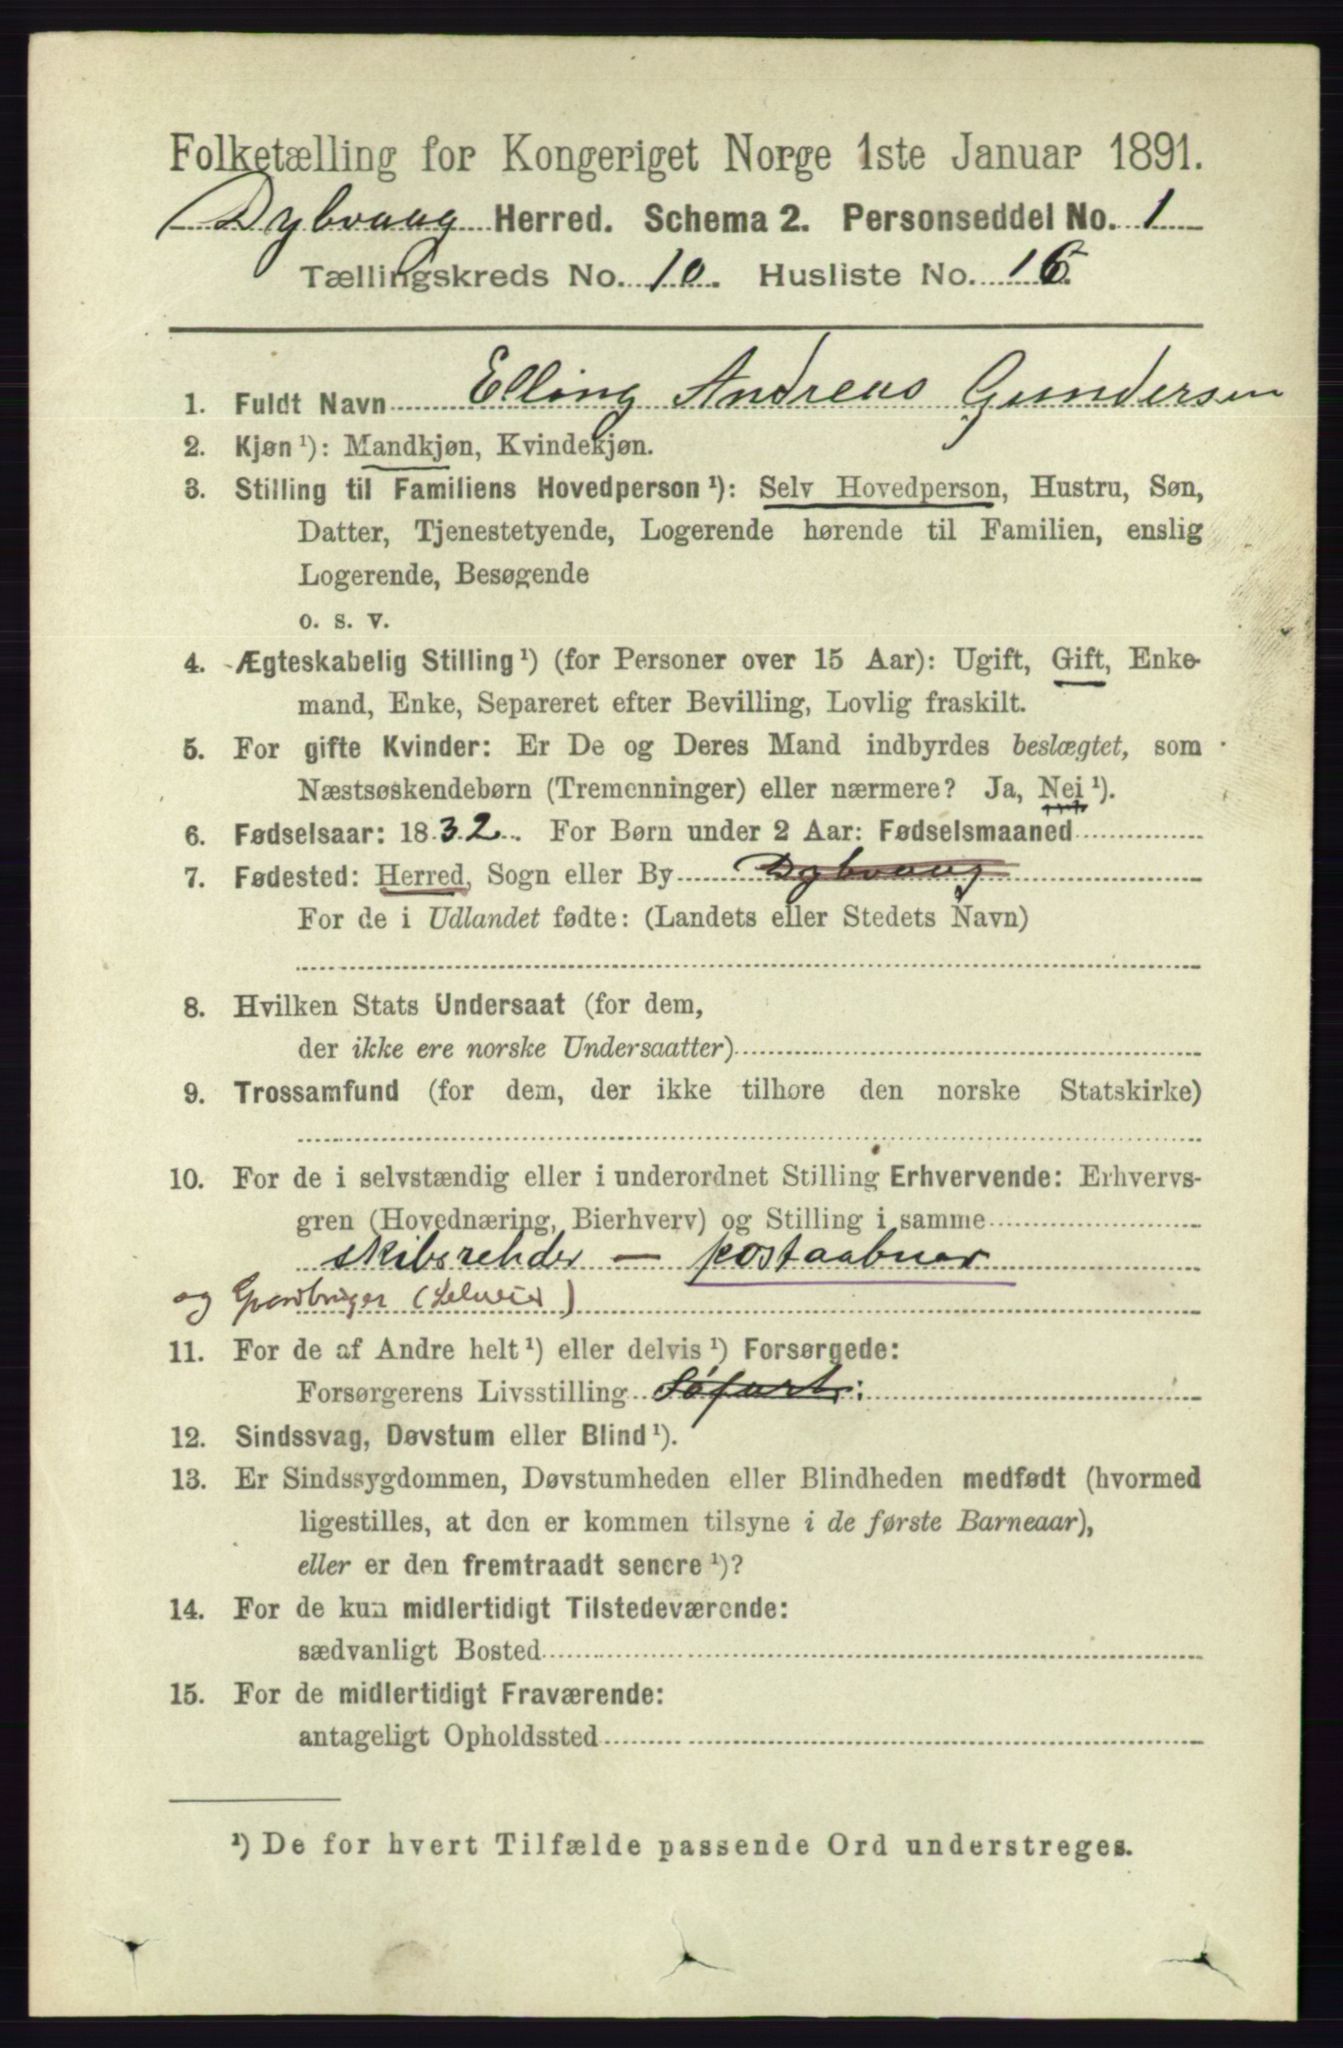 Folketælling for Kongeriget Norge 1ste Januar 1891.
Dybvaag Herred. Schema 2. Personseddel No. 1
Tællingskreds No. 10. Husliste No. 16.
1. Fuldt Navn Elling Andreas Gundersen
2. Kjøn ¹): Mandkjøn, Kvindekjøn.
3. Stilling til Familiens Hovedperson ¹): Selv Hovedperson, Hustru, Søn,
Datter, Tjenestetyende, Logerende hørende til Familien, enslig
Logerende, Besøgende
o. s. v.
4. Ægteskabelig Stilling ¹) (for Personer over 15 Aar): Ugift, Gift, Enke-
mand, Enke, Separeret efter Bevilling, Lovlig fraskilt.
5. For gifte Kvinder: Er De og Deres Mand indbyrdes beslægtet, som
Næstsøskendebørn (Tremenninger) eller nærmere? Ja, Nei ¹).
6. Fødselsaar: 1832. For Børn under 2 Aar: Fødselsmaaned
7. Fødested: Herred, Sogn eller By Dybvaag
For de i Udlandet fødte: (Landets eller Stedets Navn)
8. Hvilken Stats Undersaat (for dem,
der ikke ere norske Undersaatter)
9. Trossamfund (for dem, der ikke tilhøre den norske Statskirke)
10. For de i selvstændig eller i underordnet Stilling Erhvervende: Erhvervs-
gren (Hovednæring, Bierhverv) og Stilling i samme
skibsrehder — postaabner
og Gaardbruger (Selveier)
11. For de af Andre helt ¹) eller delvis ¹) Forsørgede:
Forsørgerens Livsstilling Søfart:
12. Sindssvag, Døvstum eller Blind ¹).
13. Er Sindssygdommen, Døvstumheden eller Blindheden medfødt (hvormed
ligestilles, at den er kommen tilsyne i de første Barneaar),
eller er den fremtraadt senere ¹)?
14. For de kun midlertidigt Tilstedeværende:
sædvanligt Bosted
15. For de midlertidigt Fraværende:
antageligt Opholdssted
¹) De for hvert Tilfælde passende Ord understreges.